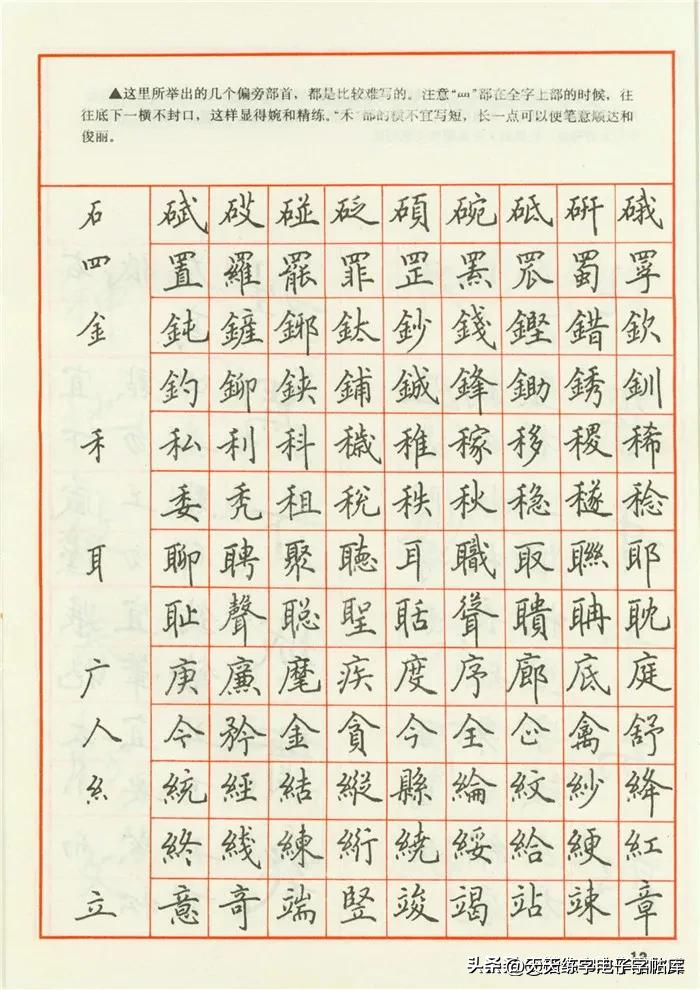 ▲这里所举出的几个偏旁部首，都是比较难写的。注意“罒”部在全字上部的时候，往
往底下一横不封口，这样显得婉和精练。“禾”部的横不宜写短，长一点可以使笔意顺达和
俊丽。
石 碔 砹 碰 砭 碩 碗 砥 硏 硪
罒 置 羅 罷 罪 罡 罴 罛 蜀 罦
金 鈍 鏟 鎁 鈦 鈔 錢 鏗 錯 欽
釣 鉚 鋏 鋪 鋮 鋒 鋤 銹 釧
禾 私 利 科 穢 稚 稼 移 稷 稀
委 秃 租 税 秩 秋 稳 穟 稔
耳 聊 聘 聚 聴 耳 職 取 聯 耶
耻 聲 聪 聖 聒 聳 聵 聃 耽
广 庚 廉 麾 疾 度 序 廊 底 庭
人 令 矜 金 貪 今 全 企 禽 舒
糹 統 經 結 縱 縣 綸 紋 紗 絳
終 綫 練 絎 繞 綏 給 綆 紅
立 意 奇 端 竪 竣 竭 站 竦 章
13
头条@天天练字电子字帖库